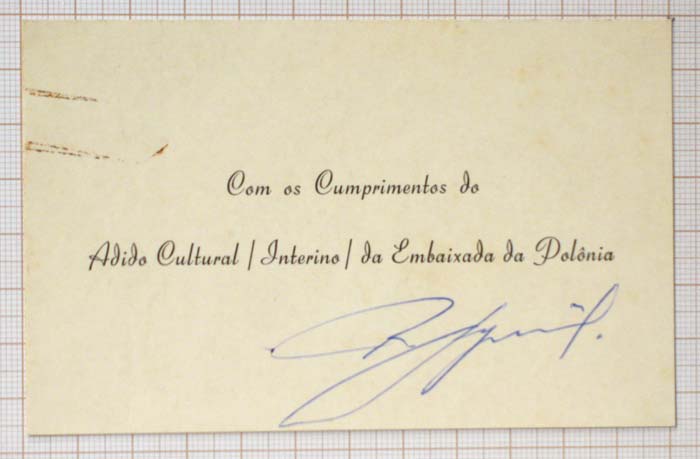 Com os Cumprimentos do
Adido Cultural / Interino / da Embaixada da Polônia